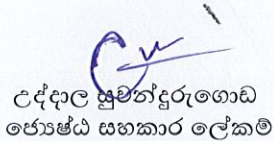 උද්දාල සුවන්දුරුගොඩ
ජ්‍යෙෂ්ඨ සහකාර ලේකම්